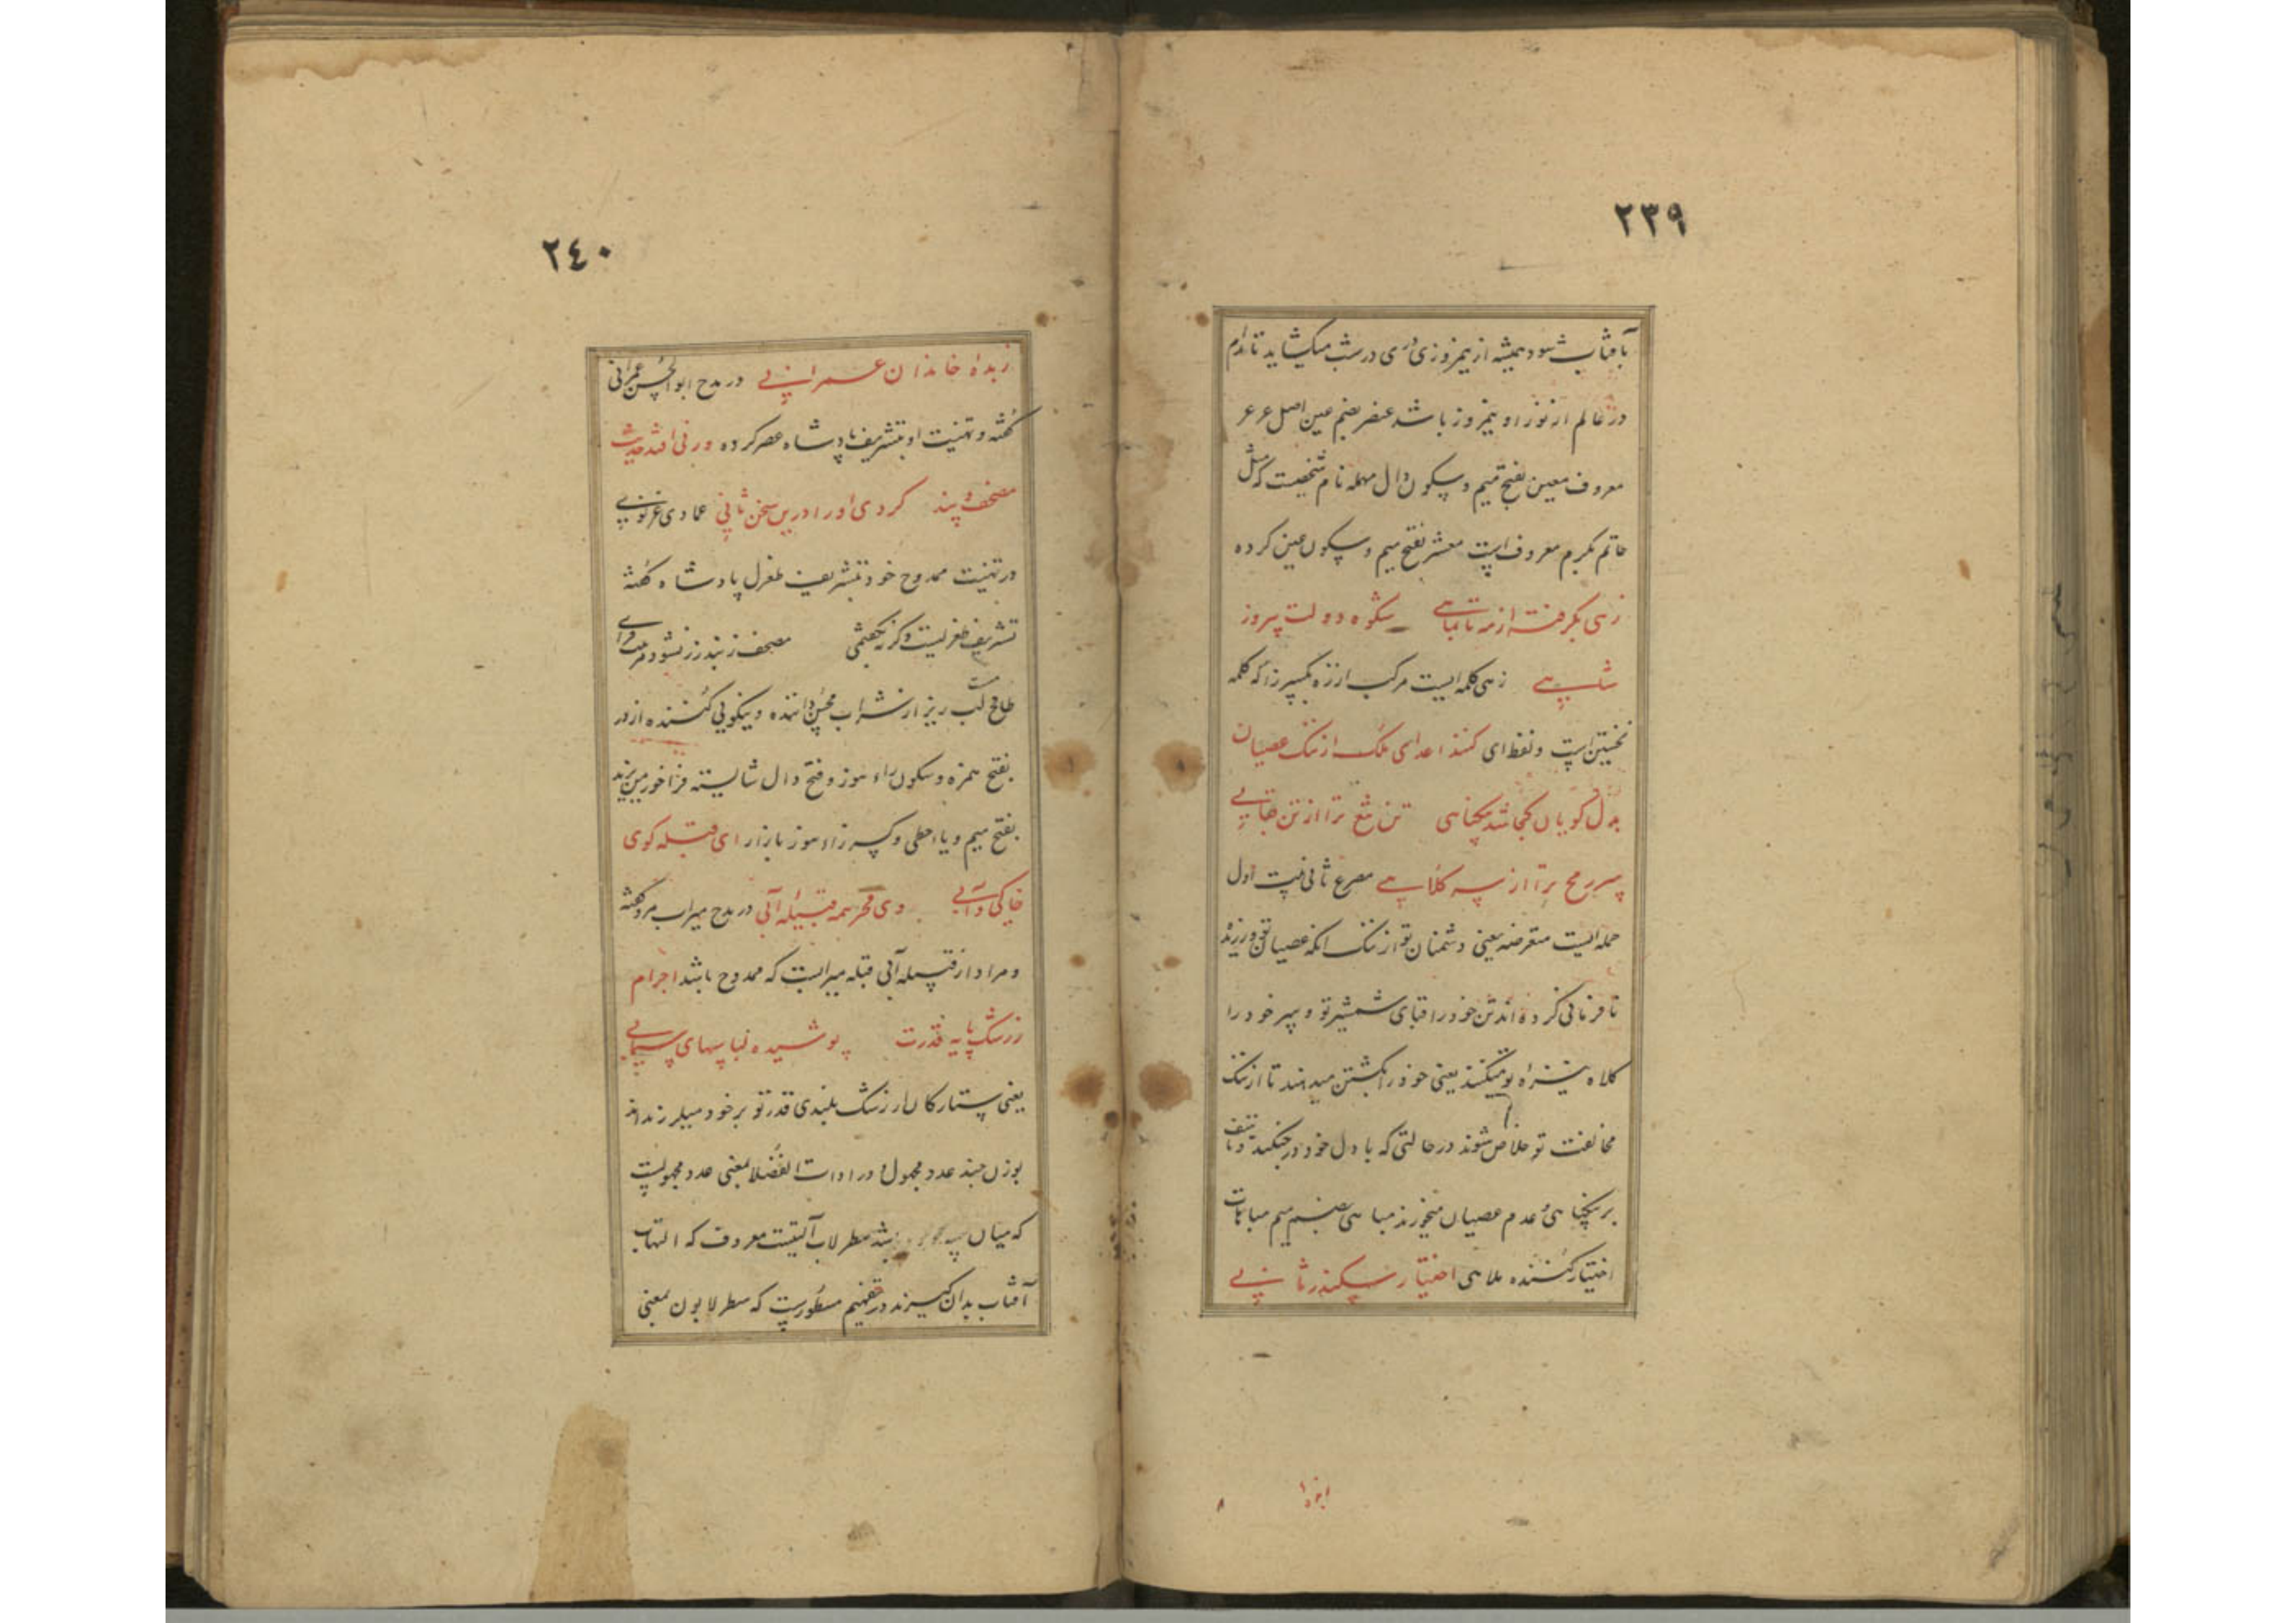 ٢٣٩
بآفتاب شود همیشه از نیمروزی دری در شب میکشاید تا دام
در عالم از نور او نیمروز باشد عنصر بضم عین اصل عر عر
معروف معین بفتح میم و سکون دال مهمله نام شخصیت که مثل
حاتم بکرم معروف است معشر بفتح میم و سکون عین کرده
زهی بگرفته از مه تا بماهی شکوه دولت پیروز
شاهی زهی کلمه ایست مرکب از زه بکسر زا که کلمه
نخستین است و لفظ ای کنند اعدای ملک از ننک عصیان
بدل کویان کجا شد بیکناهی تن تیغ ترا از تن قبایی
سر رمح ترا از سر کلاهی مصرع ثانی بیت اول
جمله ایست معترضه یعنی دشمنان تو از ننک آنکه عصیان تو ورزیده
نافرمانی کرده اند تن خود را قبای شمشیر تو و سر خود را
کلاه نیزه تو میکنند یعنی خود را بکشتن میدهند تا از ننک
مخالفت تو خلاص شوند در حالتی که با دل خود در جنکند و تاسف
بر بیکناهی و عدم عصیان میخورند مباهی بضم میم مباهات
اختیار کننده ملاهی اختیار سکندر ثانی
٢٤٠
زبدهٔ خاندان عمرانی در مدح ابوالحسن عمرانی
کفته و تهنیت او بتشریف پادشاه عصر کرده ورنی افتد حدیث
مصحف و بند کردی او را درین سخن ثانی عمادی غزنوی
در تهنیت ممدوح خود بتشریف طغرل پادشاه کفته
تشریف طغرلیست وکرنه بچشمی مصحف ز بند زر نشود مرتبت فزای
طافح لب ریز از شراب محسن داننده و نیکویی کننده ازدر
بفتح همزه و سکون زاء هوز و فتح دال شایسته فرا خور میزید
بفتح میم و یاء حطی و کسر زاء هوز بازار ای قبله کوی
خاکی و آبی وی فخر همه قبیله آبی در مدح میراب مرو کفته
و مراد از قبیله آبی قبیله میرابست که ممدوح باشد اجرام
ز رشک پایه قدرت پوشیده لباسهای سیمابی
یعنی ستارکان از رشک بلندی قدر تو بر خود میلرزند اند
بوزن چند عدد مجهول و در ادات الفضلا بمعنی عدد مجهولیست
که میان سه باشد سطرلاب آلتیست معروف که التهاب
آفتاب بدان کیرند در تفهیم مسطورست که سطرلابون بمعنی